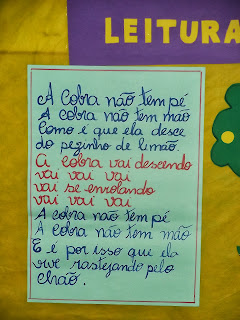 LEITURA
A cobra não tem pé
A cobra não tem mão
Como é que ela desce
do pezinho de limão.
A cobra vai descendo
vai vai vai
vai se enrolando
vai vai vai
A cobra não tem pé
A cobra não tem mão
E é por isso que ela
vive rastejando pelo
chão.